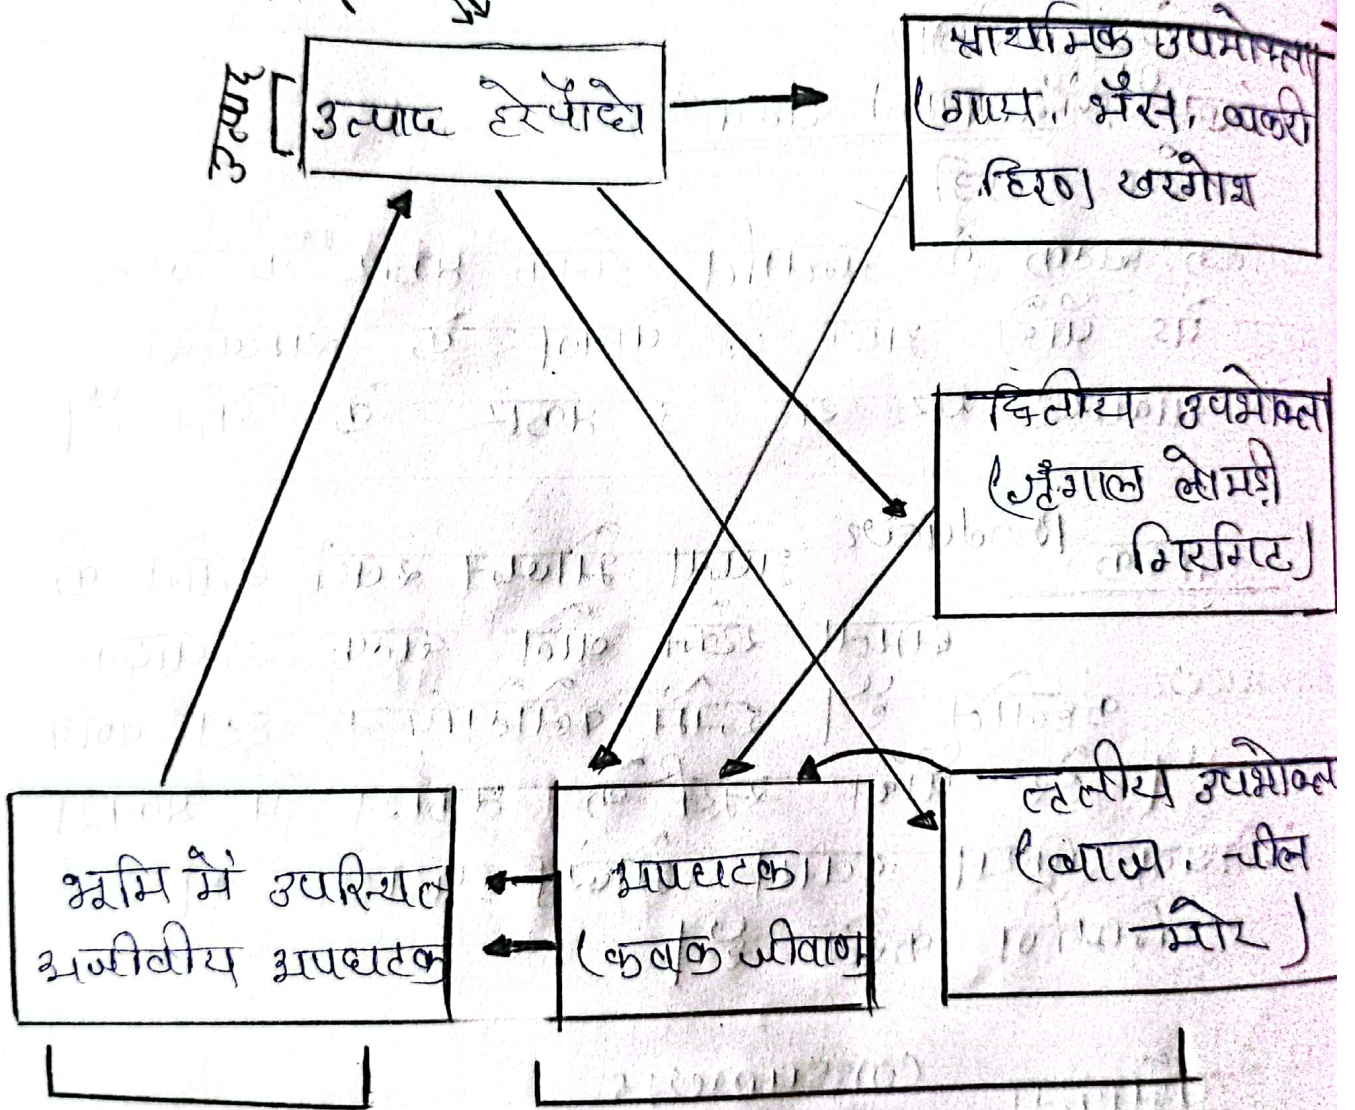 उत्पाद
उत्पाद हरे पौधे
प्राथमिक उपभोक्ता
(गाय, भैंस, बकरी
हिरण खरगोश
द्वितीय उपभोक्ता
(श्रृंगाल लोमड़ी
गिरगिट)
तृतीय उपभोक्ता
(बाज, चील
मोर)
अपघटक
(कवक जीवाणु
भूमि में उपस्थित
अजीवीय अपघटक